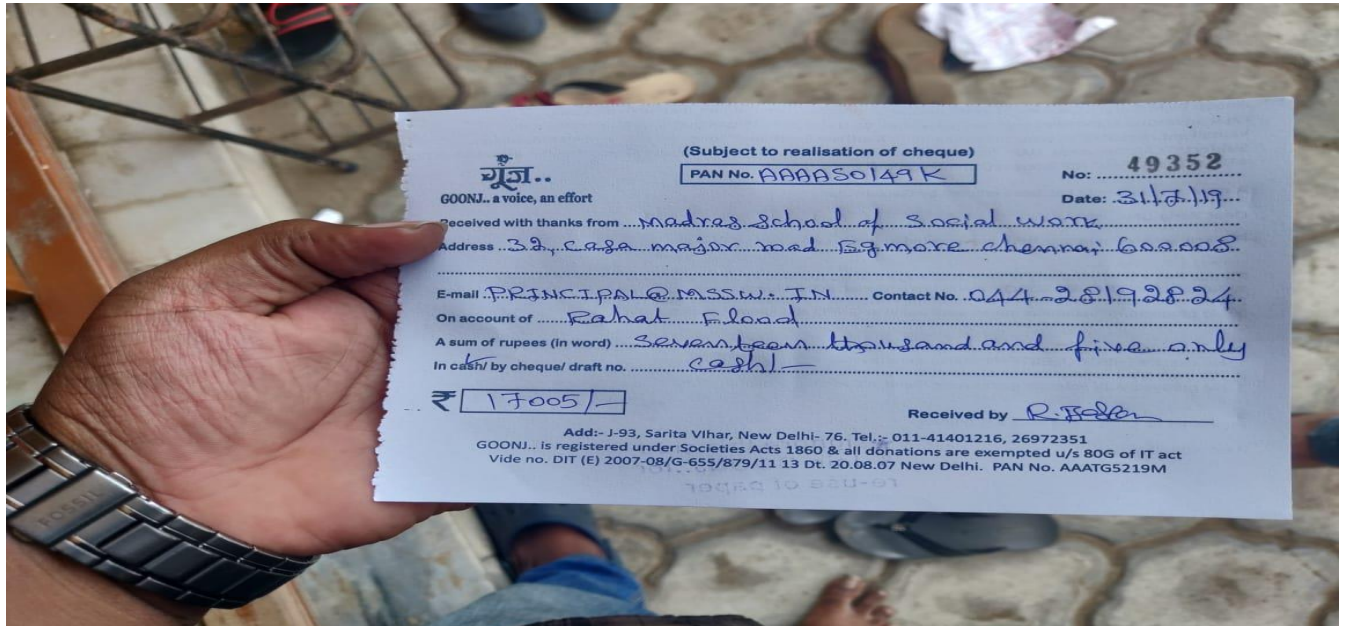 (Subject to realisation of cheque)
गूंज..
PAN No. AAAAS0149K
No: 49352
GOONJ.. a voice, an effort
Date: 31/7/19
Received with thanks from Madras School of Social work
Address 32, Casa major road Egmore chennai 600008
E-mail PRINCIPAL@MSSW.IN Contact No. 044-28192824
On account of Rahat Flood
A sum of rupees (in word) Seventeen thousand and five only
In cash/ by cheque/ draft no. cash/-
₹ 17005/-
Received by R.
Add:- J-93, Sarita Vihar, New Delhi- 76. Tel.:- 011-41401216, 26972351
GOONJ.. is registered under Societies Acts 1860 & all donations are exempted u/s 80G of IT act
Vide no. DIT (E) 2007-08/G-655/879/11 13 Dt. 20.08.07 New Delhi. PAN No. AAATG5219M
FOSSIL